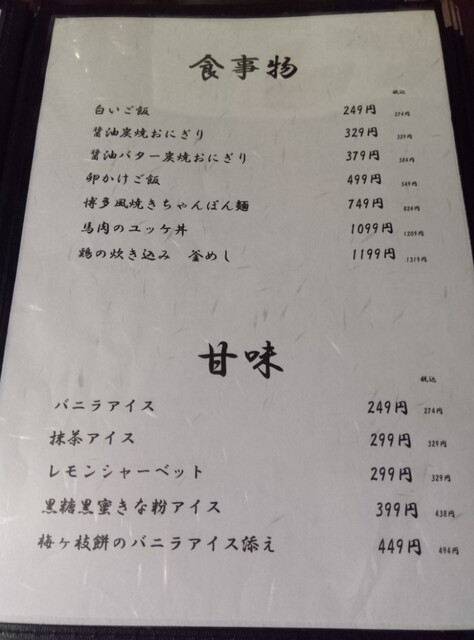 食事物
税込
白いご飯 249円 274円
醤油炭焼おにぎり 329円 329円
醤油バター炭焼おにぎり 379円 384円
卵かけご飯 499円 549円
博多風焼きちゃんぽん麺 749円 824円
馬肉のユッケ丼 1099円 1209円
鶏の炊き込み 釜めし 1199円 1319円
甘味
税込
バニラアイス 249円 274円
抹茶アイス 299円 329円
レモンシャーベット 299円 329円
黒糖黒蜜きな粉アイス 399円 438円
梅ヶ枝餅のバニラアイス添え 449円 494円